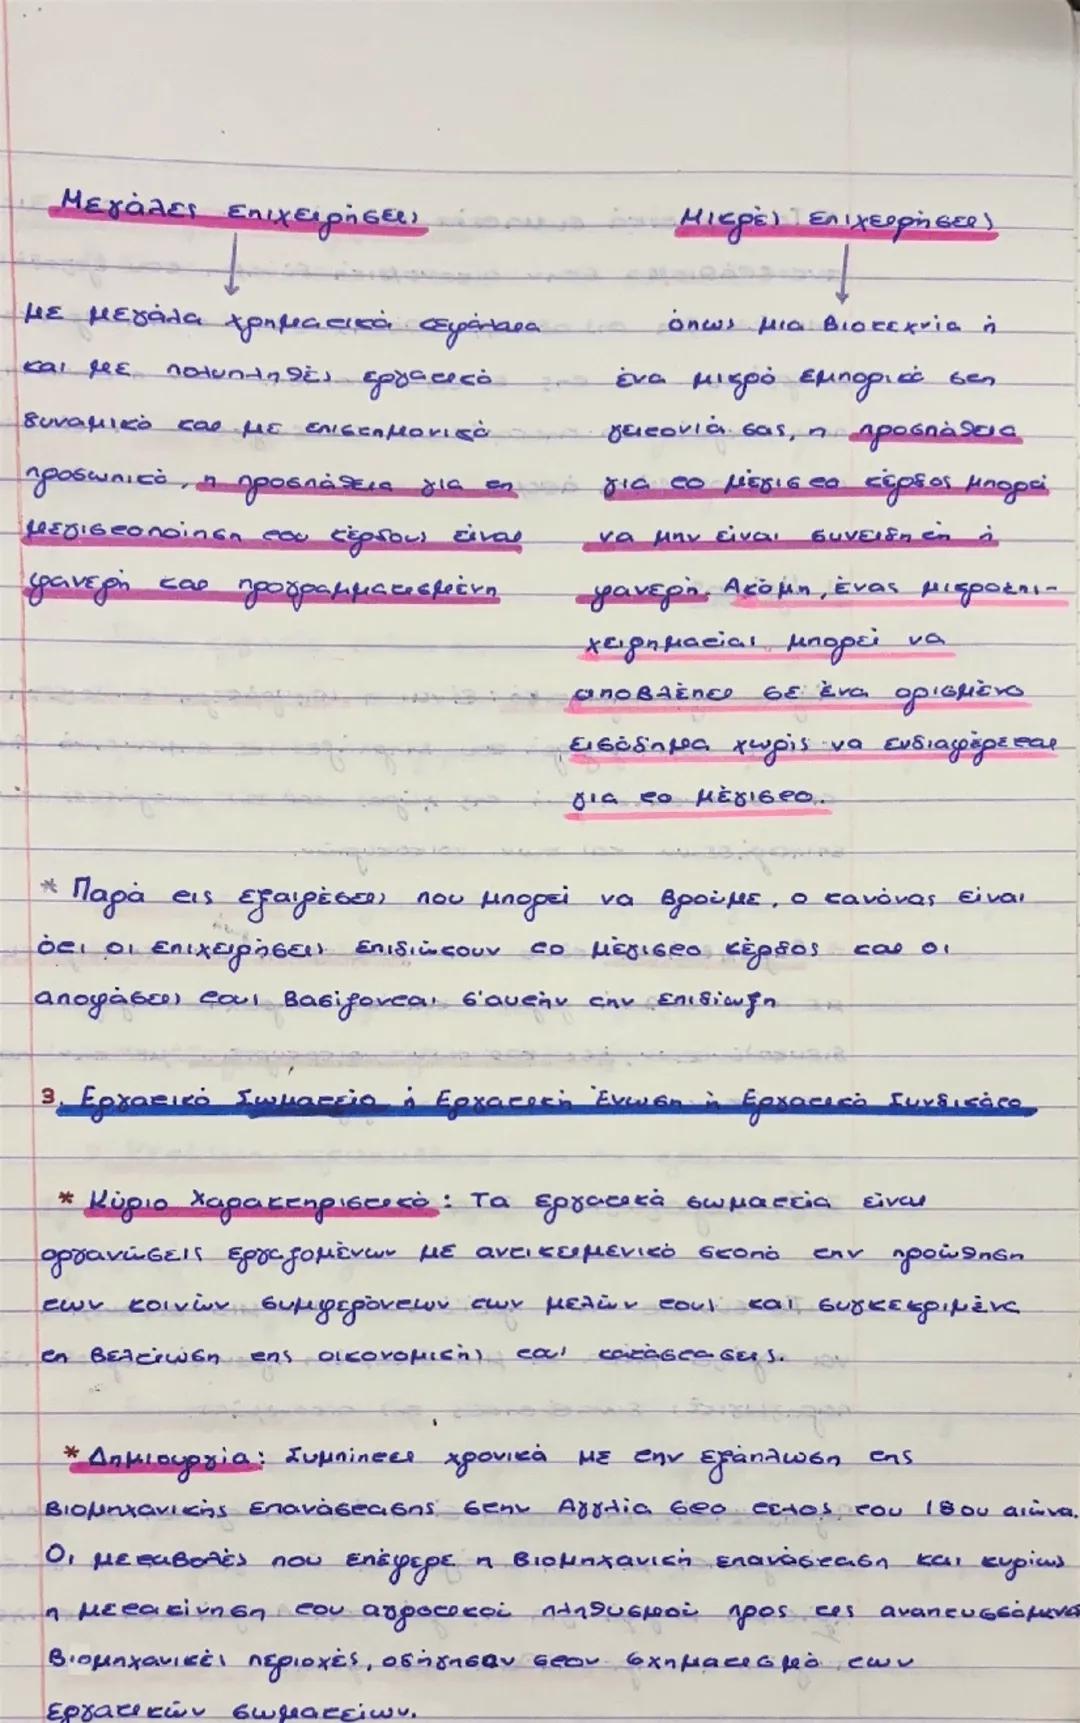 Μεγάλες επιχειρήσεις
με μεγάλα χρηματικά κεφάλαια
και με πολυπληθές εργατικό
δυναμικό και με επιστημονικό
προσωπικό, η προσπάθεια για τη
μεγιστοποίηση του κέρδους είναι
φανερή και προγραμματισμένη
Μικρές επιχειρήσεις
όπως μια βιοτεχνία ή
ένα μικρό εμπορικό στη
γειτονιά σας, η προσπάθεια
για το μέγιστο κέρδος μπορεί
να μην είναι συνειδητή ή
φανερή. Ακόμη, ένας μικροεπι-
χειρηματίας μπορεί να
αποβλέπει σε ένα ορισμένο
εισόδημα χωρίς να ενδιαφέρεται
για το μέγιστο.
* Παρά τις εξαιρέσεις που μπορεί να βρούμε, ο κανόνας είναι
ότι οι επιχειρήσεις επιδιώκουν το μέγιστο κέρδος και οι
αποφάσεις τους βασίζονται σ'αυτήν την επιδίωξη
3. Εργατικό Σωματείο ή Εργατική Ένωση ή Εργατικό Συνδικάτο
* Κύριο Χαρακτηριστικό: Τα εργατικά σωματεία είναι
οργανώσεις εργαζομένων με αντικειμενικό σκοπό την προώθηση
των κοινών συμφερόντων των μελών τους και συγκεκριμένα
τη βελτίωση της οικονομικής τους κατάστασεις.
* Δημιουργία: Συμπίπτει χρονικά με την εξάπλωση της
βιομηχανικής επανάστασης στην Αγγλία στο τέλος του 18ου αιώνα.
Οι μεταβολές που επέφερε η βιομηχανική επανάσταση και κυρίως
η μετακίνηση του αγροτικού πληθυσμού προς τις αναπτυσσόμενα
βιομηχανικές περιοχές, οδήγησαν στον σχηματισμό των
εργατικών σωματείων.